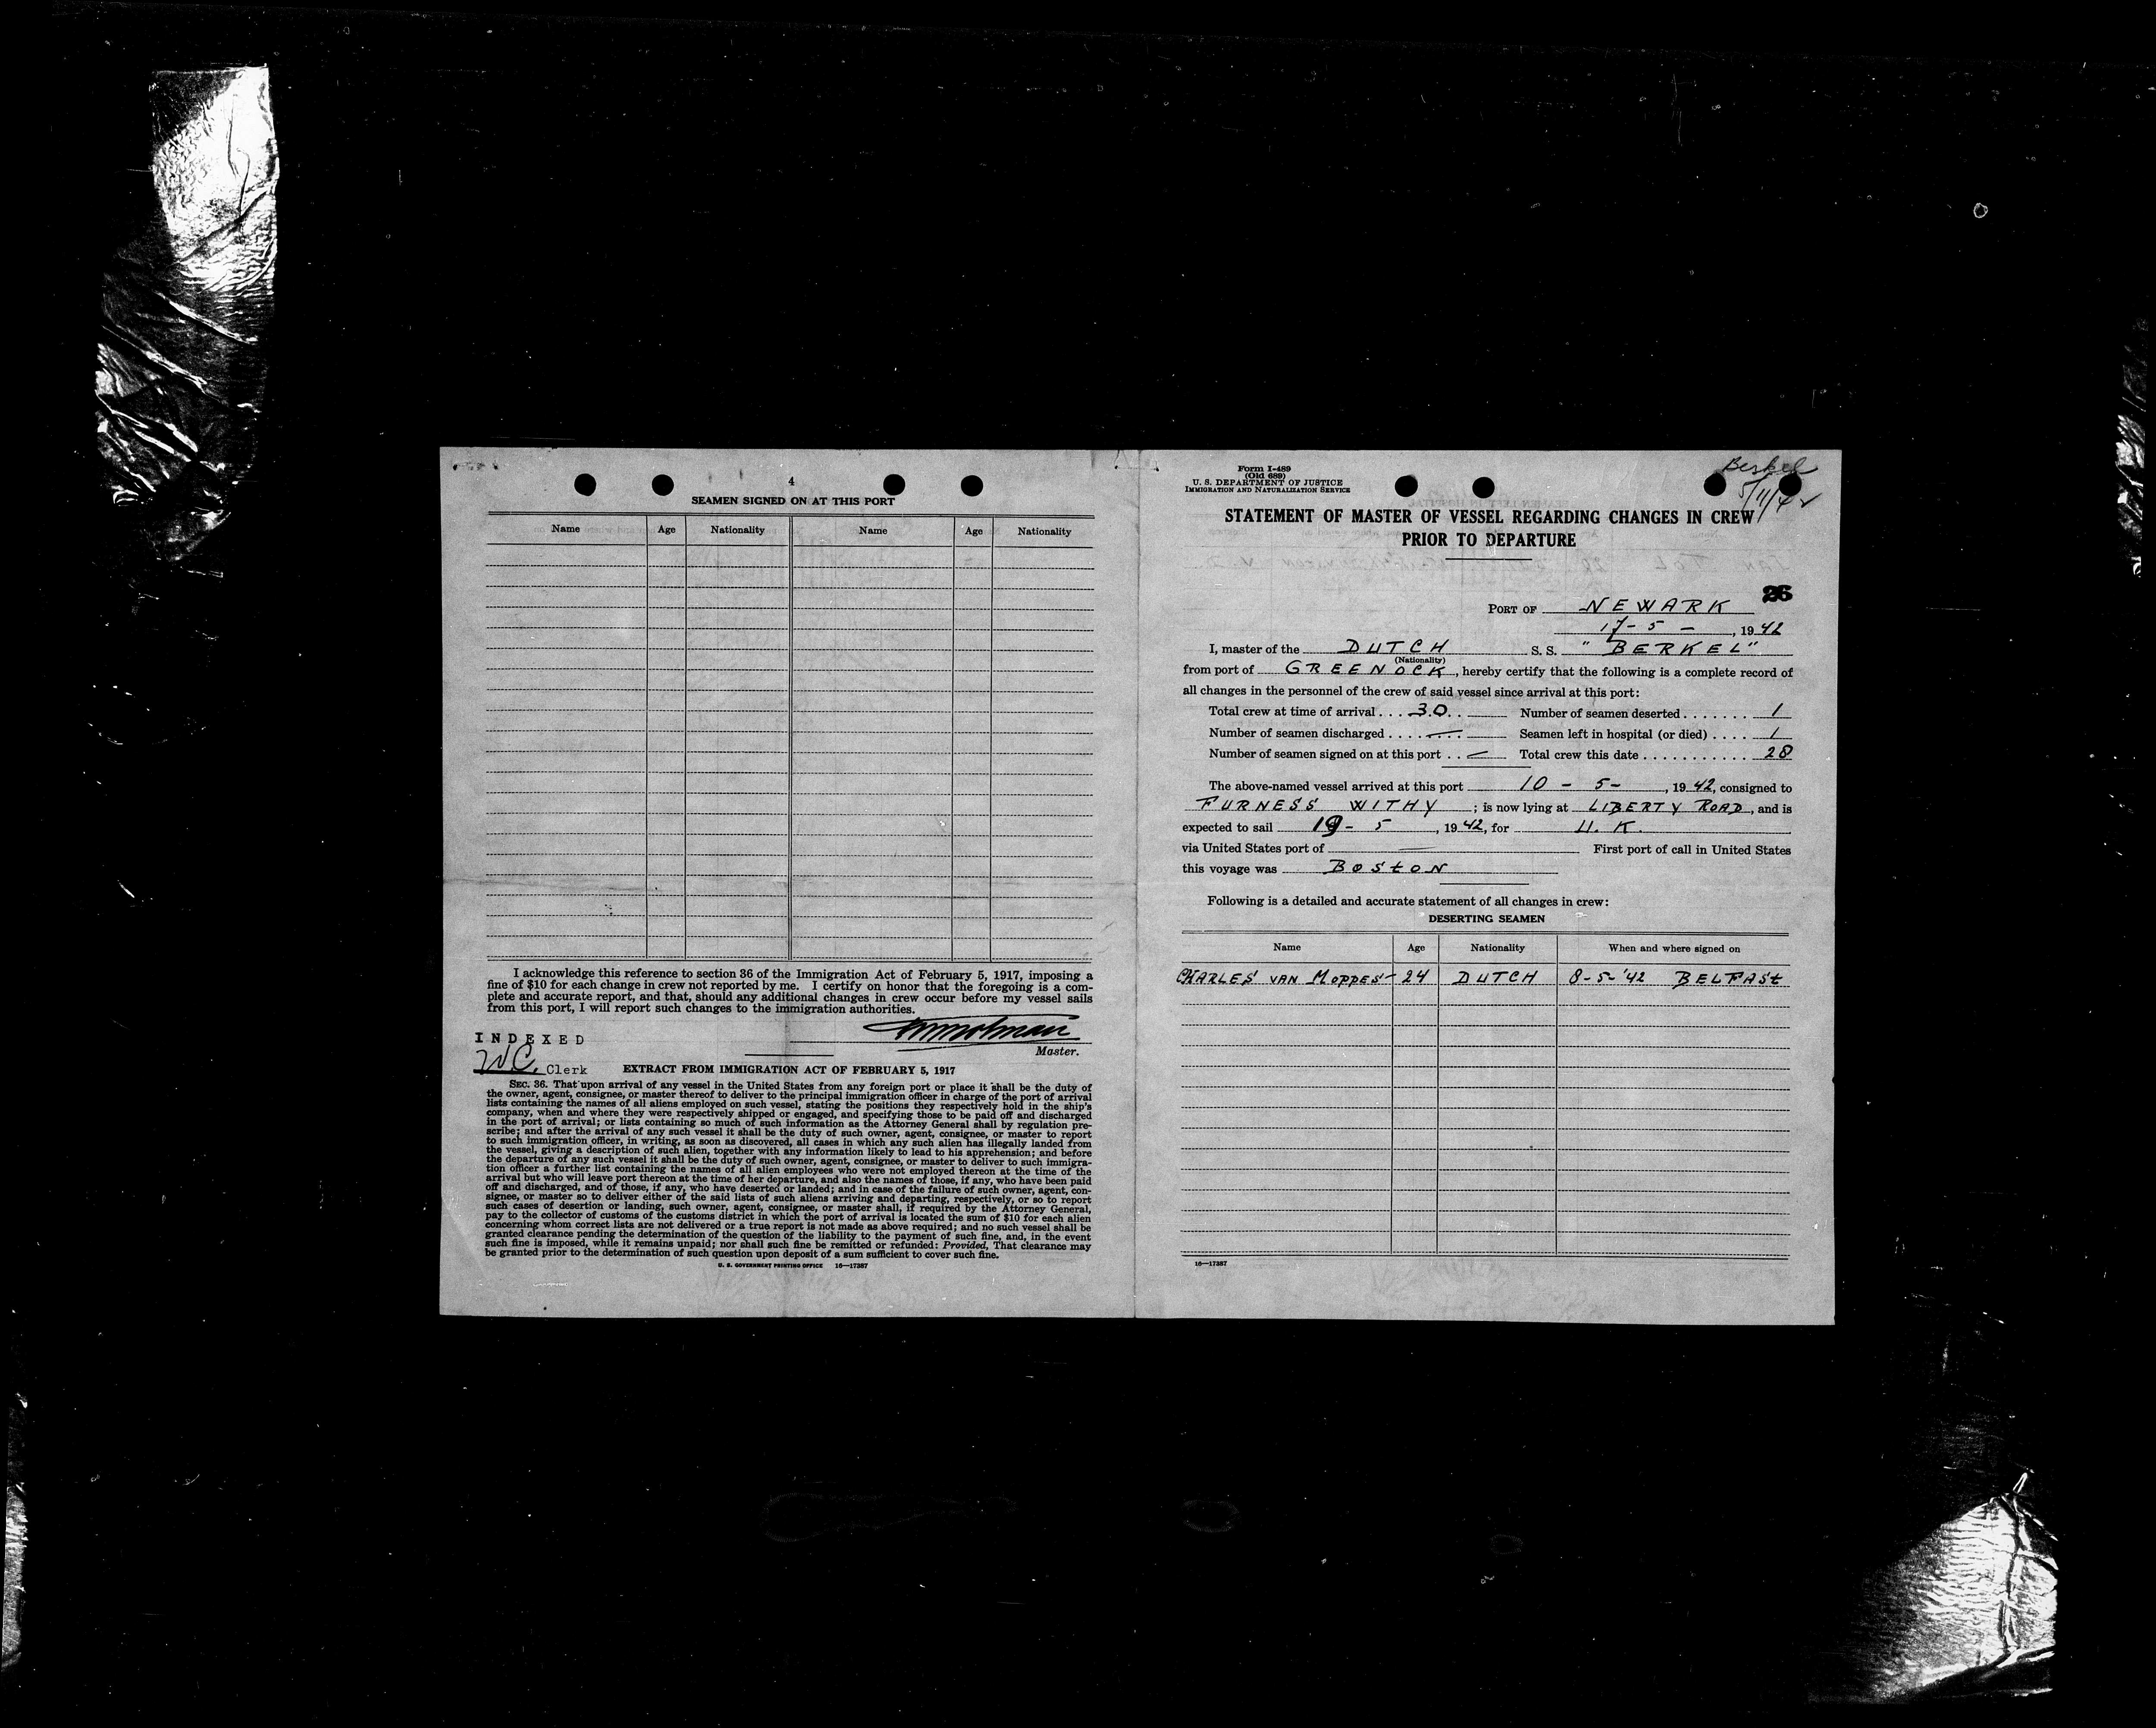 4
SEAMEN SIGNED ON AT THIS PORT
Name Age Nationality Name Age Nationality
I acknowledge this reference to section 36 of the Immigration Act of February 5, 1917, imposing a
fine of $10 for each change in crew not reported by me. I certify on honor that the foregoing is a com-
plete and accurate report, and that, should any additional changes in crew occur before my vessel sails
from this port, I will report such changes to the immigration authorities.
INDEXED
Master.
WC. Clerk
EXTRACT FROM IMMIGRATION ACT OF FEBRUARY 5, 1917
SEC. 36. That upon arrival of any vessel in the United States from any foreign port or place it shall be the duty of
the owner, agent, consignee, or master thereof to deliver to the principal immigration officer in charge of the port of arrival
lists containing the names of all aliens employed on such vessel, stating the positions they respectively hold in the ship's
company, when and where they were respectively shipped or engaged, and specifying those to be paid off and discharged
in the port of arrival; or lists containing so much of such information as the Attorney General shall by regulation pre-
scribe; and after the arrival of any such vessel it shall be the duty of such owner, agent, consignee, or master to report
to such immigration officer, in writing, as soon as discovered, all cases in which any such alien has illegally landed from
the vessel, giving a description of such alien, together with any information likely to lead to his apprehension; and before
the departure of any such vessel it shall be the duty of such owner, agent, consignee, or master to deliver to such immigra-
tion officer a further list containing the names of all alien employees who were not employed thereon at the time of the
arrival but who will leave port thereon at the time of her departure, and also the names of those, if any, who have been paid
off and discharged, and of those, if any, who have deserted or landed; and in case of the failure of such owner, agent, con-
signee, or master so to deliver either of the said lists of such aliens arriving and departing, respectively, or so to report
such cases of desertion or landing, such owner, agent, consignee, or master shall, if required by the Attorney General,
pay to the collector of customs of the customs district in which the port of arrival is located the sum of $10 for each alien
concerning whom correct lists are not delivered or a true report is not made as above required; and no such vessel shall be
granted clearance pending the determination of the question of the liability to the payment of such fine, and, in the event
such fine is imposed, while it remains unpaid; nor shall such fine be remitted or refunded: Provided, That clearance may
be granted prior to the determination of such question upon deposit of a sum sufficient to cover such fine.
U. S. GOVERNMENT PRINTING OFFICE 16—17387
Form I-489
(Old 689)
U. S. DEPARTMENT OF JUSTICE
IMMIGRATION AND NATURALIZATION SERVICE
Berkel
5/11/42
STATEMENT OF MASTER OF VESSEL REGARDING CHANGES IN CREW
PRIOR TO DEPARTURE
26
PORT OF NEWARK
17-5-, 1942
I, master of the DUTCH S. S. "BERKEL"
(Nationality)
from port of GREENOCK, hereby certify that the following is a complete record of
all changes in the personnel of the crew of said vessel since arrival at this port:
Total crew at time of arrival . . . 30 . . Number of seamen deserted . . . . . . . 1
Number of seamen discharged . . . . — Seamen left in hospital (or died) . . . . 1
Number of seamen signed on at this port . . — Total crew this date . . . . . . . . . . . 28
The above-named vessel arrived at this port 10-5-, 1942, consigned to
FURNESS WITHY; is now lying at LIBERTY ROAD, and is
expected to sail 19-5, 1942, for U.K.
via United States port of — First port of call in United States
this voyage was BOSTON
Following is a detailed and accurate statement of all changes in crew:
DESERTING SEAMEN
Name Age Nationality When and where signed on
CHARLES VAN MOPPES - 24 DUTCH 8-5-'42 BELFAST
16—17387